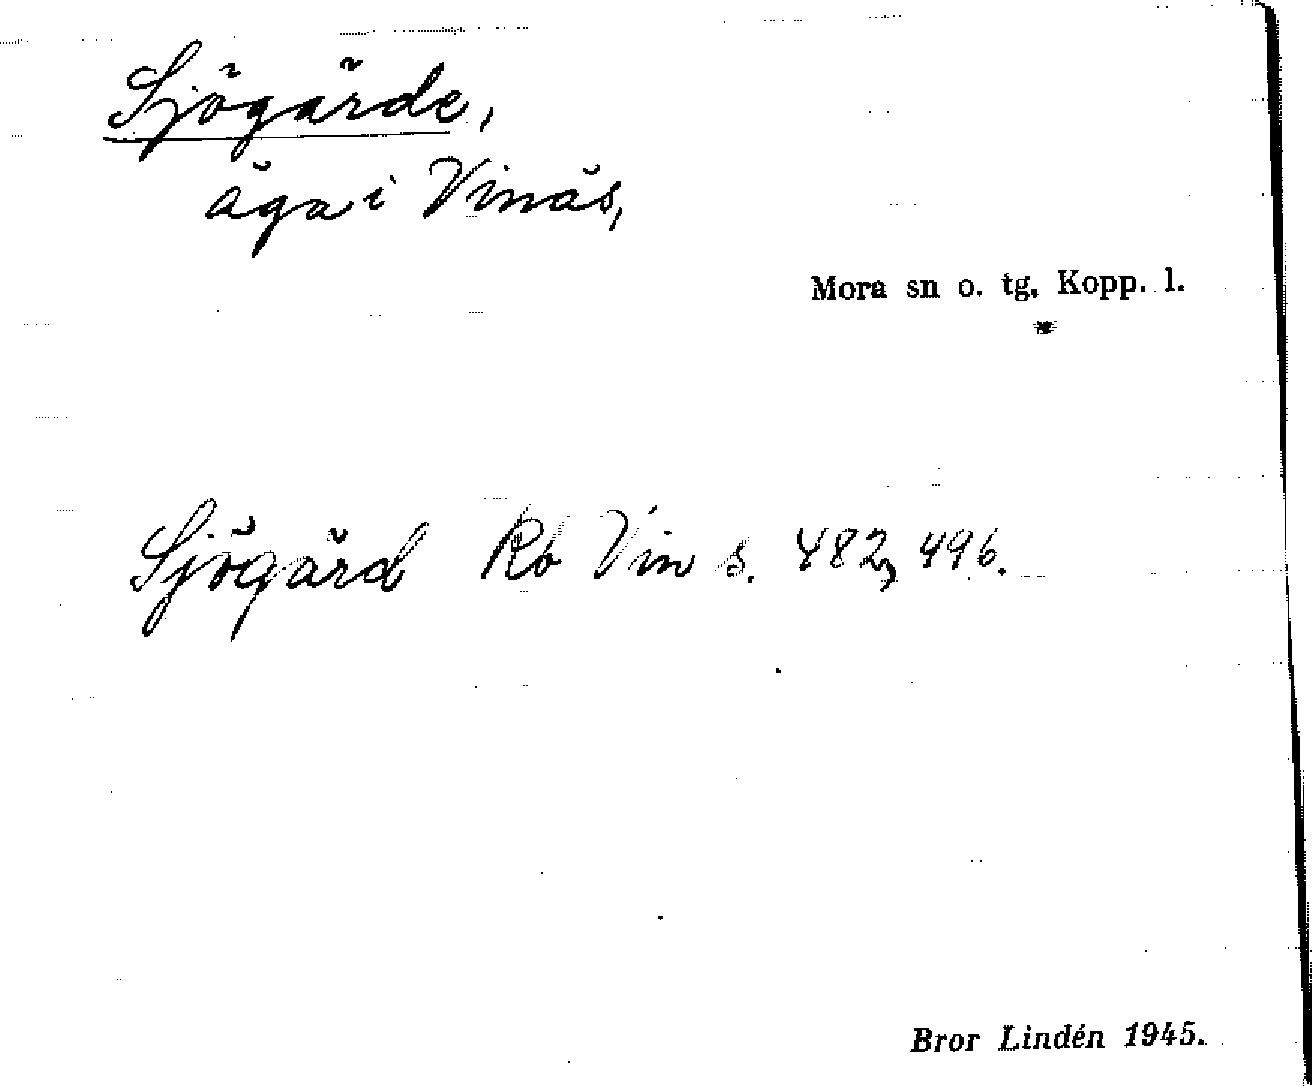 Sjögärde,
äga i Vinäs,
Mora sn o. tg. Kopp. l.
*
Sjögärd Rb Vin s. 482, 496.
Bror Lindén 1945.